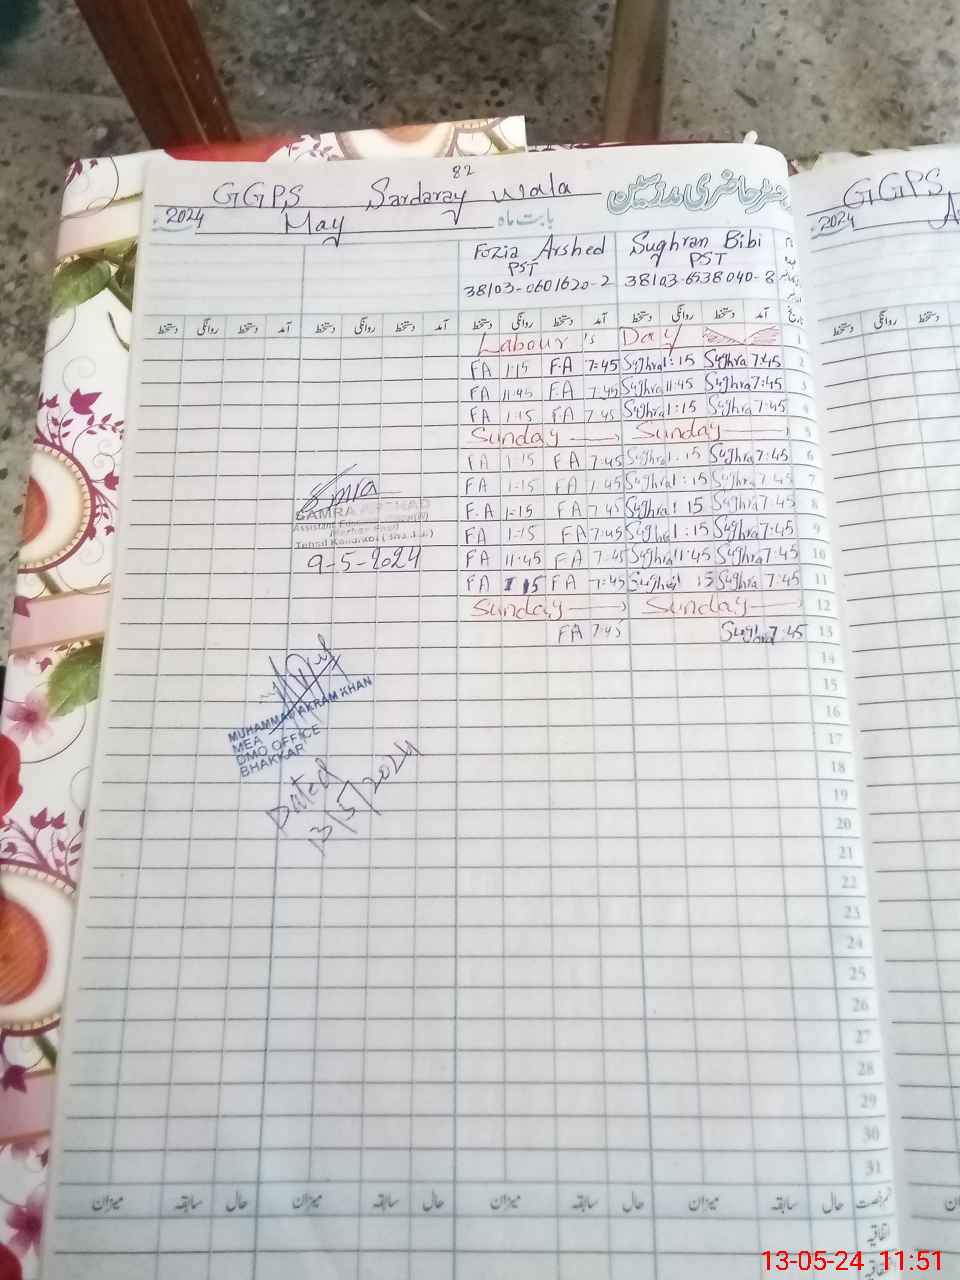 82
GGPS Sardaray wala رجسٹر حاضری مدرسین
2024 May بابت ماہ
Fozia Arshed Sughran Bibi
PST PST
38103-0601620-2 38103-6538040-8
دستخط روانگی دستخط آمد دستخط روانگی دستخط آمد دستخط روانگی دستخط آمد دستخط روانگی دستخط آمد تاریخ
Labour's Day 1
FA 1:15 F.A 7:45 Sughra 1:15 Sughra 7:45 2
FA 11:45 F.A 7:45 Sughra 11:45 Sughra 7:45 3
FA 1:15 FA 7:45 Sughra 1:15 Sughra 7:45 4
Sunday Sunday 5
FA 1:15 FA 7:45 Sughra 1:15 Sughra 7:45 6
FA 1:15 FA 7:45 Sughra 1:15 Sughra 7:45 7
F.A 1:15 FA 7:45 Sughra 1:15 Sughra 7:45 8
FA 1:15 FA 7:45 Sughra 1:15 Sughra 7:45 9
FA 11:45 FA 7:45 Sughra 11:45 Sughra 7:45 10
FA 1:15 FA 7:45 Sughra 1:15 Sughra 7:45 11
Sunday Sunday 12
FA 7:45 Sughra 7:45 13
SAMRA ARSHAD
Assistant Education
Tehsil
9-5-2024
MUHAMMAD AKRAM KHAN
MEA
DMO OFFICE
BHAKKAR
Dated
13/5/2024
14
15
16
17
18
19
20
21
22
23
24
25
26
27
28
29
30
31
میزان سابقہ حال میزان سابقہ حال میزان سابقہ حال میزان سابقہ حال رخصت
اتفاقیہ
GGPS
2024
دستخط روانگی دستخط
13-05-24 11:51